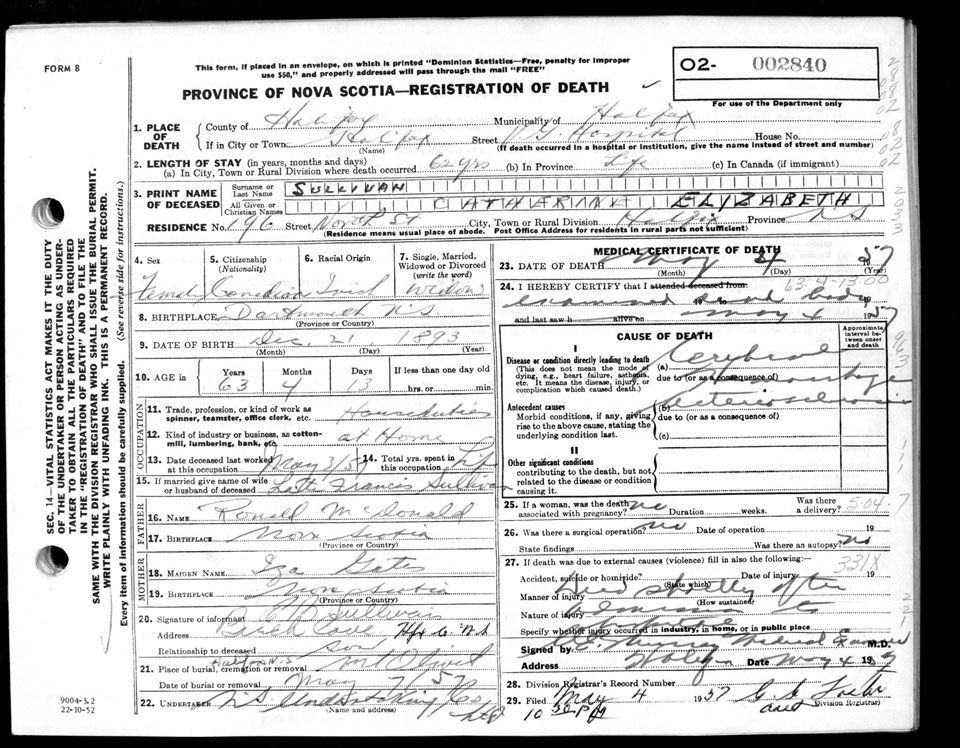 FORM 8
This form, if placed in an envelope, on which is printed "Dominion Statistics—Free, penalty for improper
use $50," and properly addressed will pass through the mail "FREE"
PROVINCE OF NOVA SCOTIA—REGISTRATION OF DEATH
O2- 002840
For use of the Department only
SEC. 14—VITAL STATISTICS ACT MAKES IT THE DUTY
OF THE UNDERTAKER OR PERSON ACTING AS UNDER-
TAKER TO OBTAIN ALL THE PARTICULARS REQUIRED
IN THE "REGISTRATION OF DEATH" AND TO FILE THE
SAME WITH THE DIVISION REGISTRAR WHO SHALL ISSUE THE BURIAL PERMIT.
WRITE PLAINLY WITH UNFADING INK. THIS IS A PERMANENT RECORD.
Every item of information should be carefully supplied. (See reverse side for instructions.)
1. PLACE OF DEATH
County of Halifax Municipality of Halifax
If in City or Town Halifax Street V.G. Hospital House No.
(Name) (If death occurred in a hospital or institution, give the name instead of street and number)
2. LENGTH OF STAY (in years, months and days)
(a) In City, Town or Rural Division where death occurred 62 yrs (b) In Province Life (c) In Canada (if immigrant)
3. PRINT NAME OF DECEASED
Surname or Last Name SULLIVAN
All Given or Christian Names CATHARINA ELIZABETH
RESIDENCE No. 196 Street North St City, Town or Rural Division Halifax Province N S
(Residence means usual place of abode. Post Office Address for residents in rural parts not sufficient)
4. Sex 5. Citizenship (Nationality) 6. Racial Origin 7. Single, Married, Widowed or Divorced (write the word)
Female Canadian Irish Widow
8. BIRTHPLACE Dartmouth N.S.
(Province or Country)
9. DATE OF BIRTH Dec. 21, 1893
(Month) (Day) (Year)
10. AGE in Years Months Days If less than one day old
63 4 13 hrs. or min.
OCCUPATION
11. Trade, profession, or kind of work as spinner, teamster, office clerk, etc. Houseduties
12. Kind of industry or business, as cotton-mill, lumbering, bank, etc. at Home
13. Date deceased last worked at this occupation May 3/57 14. Total yrs. spent in this occupation Life
15. If married give name of wife or husband of deceased Late Francis Sullivan
FATHER
16. NAME Ronald McDonald
17. BIRTHPLACE Nova Scotia
(Province or Country)
MOTHER
18. MAIDEN NAME Gates
19. BIRTHPLACE Nova Scotia
(Province or Country)
20. Signature of informant Sullivan
Address Hfx Co N.S.
Relationship to deceased son
21. Place of burial, cremation or removal Halifax N.S. Mt Olivet
Date of burial or removal May 7/57
22. UNDERTAKER N.S. Undertaking Co Ltd
(Name and address)
MEDICAL CERTIFICATE OF DEATH
23. DATE OF DEATH May 4 1957
(Month) (Day) (Year)
63-4-13-00
24. I HEREBY CERTIFY that I attended deceased from:
examined dead body
and last saw h alive on May 4 1957
CAUSE OF DEATH
Approximate interval between onset and death
I
Disease or condition directly leading to death
(This does not mean the mode of dying, e.g., heart failure, asthenia, etc. It means the disease, injury, or complication which caused death.)
(a) Cerebral
due to (or as a consequence of) Hemorrhage
Antecedent causes
Morbid conditions, if any, giving rise to the above cause, stating the underlying condition last.
(b) arteriosclerosis
due to (or as a consequence of)
(c)
II
Other significant conditions
contributing to the death, but not related to the disease or condition causing it.
25. If a woman, was the death associated with pregnancy? no Duration weeks. Was there a delivery? 5-04-7
26. Was there a surgical operation? no Date of operation 19
State findings Was there an autopsy? No
27. If death was due to external causes (violence) fill in also the following:—
331X
Accident, suicide or homicide? Date of injury 19
(State which)
Manner of injury Died shortly after
(How sustained)
Nature of injury admission to
Specify whether injury occurred in industry, in home, or in public place
Signed by Murray Medical Examiner M.D.
Address Halifax Date May 4 1957
28. Division Registrar's Record Number
29. Filed May 4 1957
Division Registrar)
9004-3.2
22-10-52